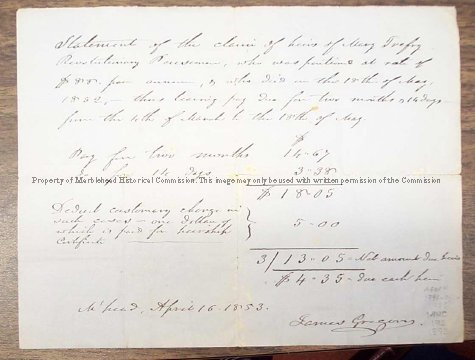 Statement of the claim of heirs of Mary Trefry
Revolutionary Pensioner, who was pensioned at rate of
$88. per annum, & who died on the 18th of May
1852, - thus leaving pay due for two months & 14 days
from the 4th of March to the 18th of May
$
Pay for two months 14-67
14 days 3-38
Property of Marblehead Historical Commission. This image may only be used with written permission of the Commission
$ 18-05
Deduct customary charge in
such cases - one dollar of
which is paid for heirship
certificate
5-00
3/13-05- Net amount due heirs
$ 4-35- due each heir
M'head, April 16. 1853.
James Gregory